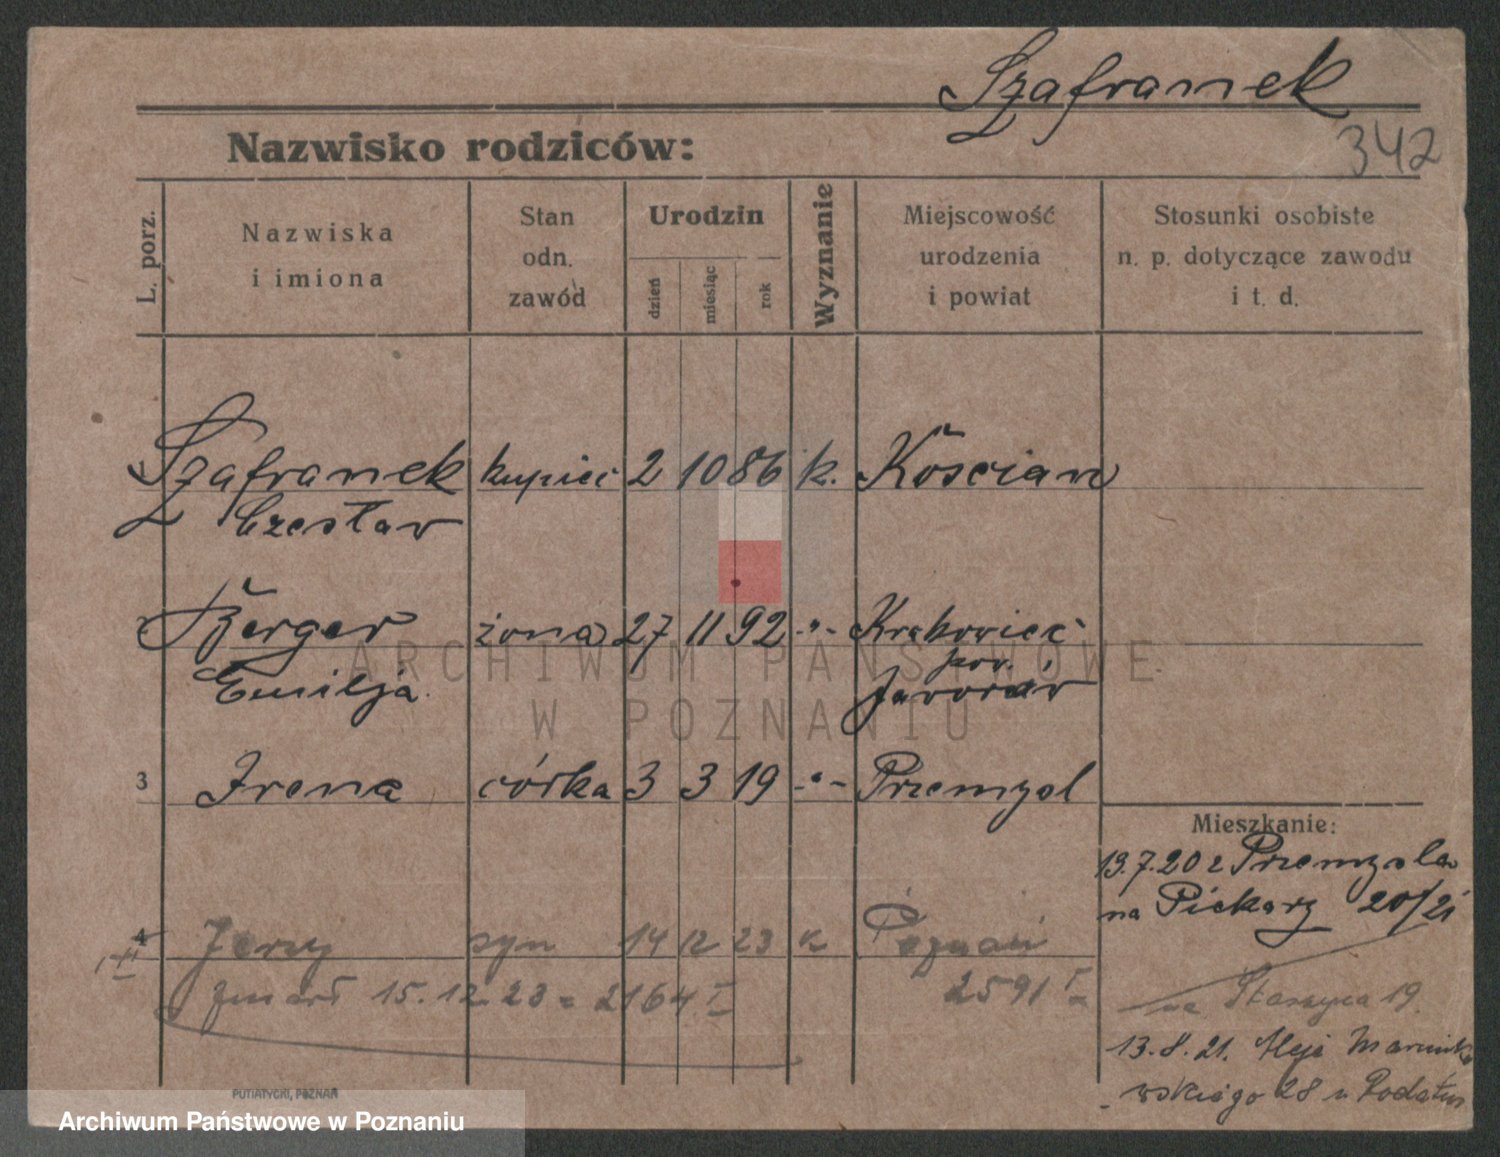 Szafranek
342
Nazwisko rodziców:
L. porz.
Nazwiska
i imiona
Stan
odn.
zawód
Urodzin
dzień
miesiąc
rok
Wyznanie
Miejscowość
urodzenia
i powiat
Stosunki osobiste
n. p. dotyczące zawodu
i t. d.
Szafranek kupiec 2 10 86 k. Kościan
Czesław
Berger żona 27 11 92 -"- Krakowiec
pow.
Emilja Jaworów
3 Irena córka 3 3 19 -"- Przemyśl
4 Jerzy syn 14 12 23 k Poznań
zmarł 15.12.23 = 2164 I 2591 I
Mieszkanie:
13.7.20 z Przemyśla
na Piekary 20/21
na Staszyca 19.
13.8.21. Aleje Marcinko
wskiego 28 u
PUTIATYCKI, POZNAŃ
ARCHIWUM PAŃSTWOWE
W POZNANIU
Archiwum Państwowe w Poznaniu